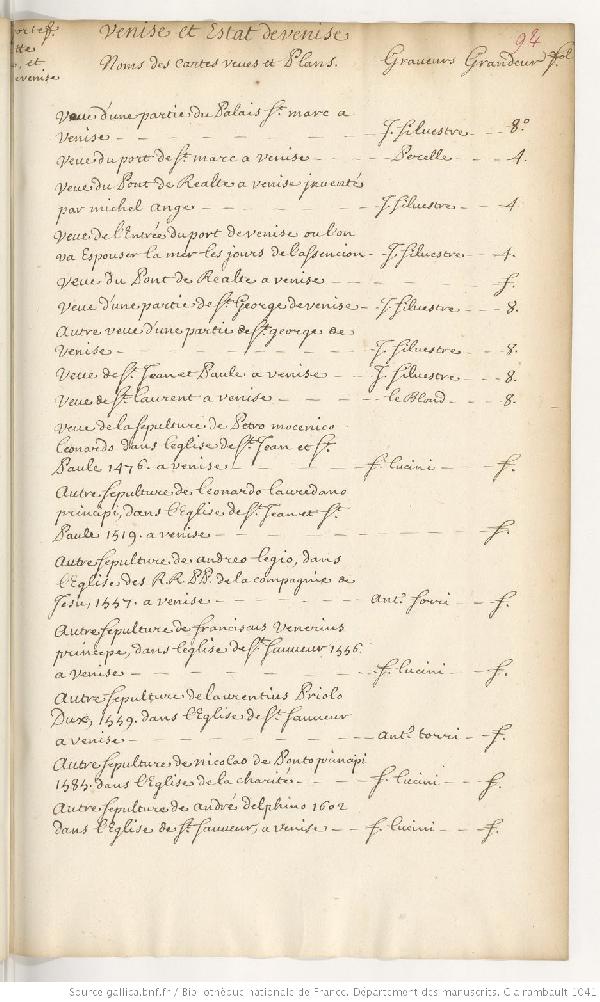 Venise et Estat de venise
94
Noms des Cartes veues et Plans. Graveurs Grandeur fol.
et
evenise
Veue d'une partie du Palais St. marc a
venise — — — J. Silvestre — 8.°
veue du port de St marc a venise — — Perelle — 4.
veue du Pont de Realte a venise inventé
par michel ange — — — J. Silvestre — 4
Veue de l'Entrée du port de venise ou l'on
va Espouser la mer les jours de l'assencion - J. Silvestre — 4.
veue du Pont de Realte a venise — — — f.
Veue d'une partie de St. George de venise — J. Silvestre — 8.
Autre veue d'une partie de St. george de
venise — — — J. Silvestre — 8.
Veue de St. Jean et Paule a venise — J. Silvestre — 8.
Veue de St. Laurent a venise — — le Blond — 8.
veue de la sepulture de Petro mocenico
Leonardo dans l'eglise de St. Jean et St.
Paule 1476. a venise — — — f. lucini — f.
Autre sepulture de leonardo lauredano
principi, dans l'Eglise de St. Jean et St.
Paule 1519. a venise — — — f.
Autre sepulture de andreo legio, dans
l'Eglise des R.R. PP. de la compagnie de
Jesu, 1557. a venise — — — Ant.° forri — f.
Autre sepulture de franciscus Venerius
principe, dans l'eglise de St. Sauueur 1556.
a venise — — — f. lucini — f.
Autre sepulture de laurentius Priolo
Dux, 1559. dans l'Eglise de St. Sauueur
a venise — — — Ant.° torri — f.
Autre sepulture de nicolao de Ponto principi
1585. dans l'Eglise de la charité — — f. lucini — f.
Autre sepulture de andré delphino 1602
dans l'Eglise de St. Sauueur, a venise — f. lucini — f.
Source gallica.bnf.fr / Bibliothèque nationale de France. Département des manuscrits. Clairambault 1041